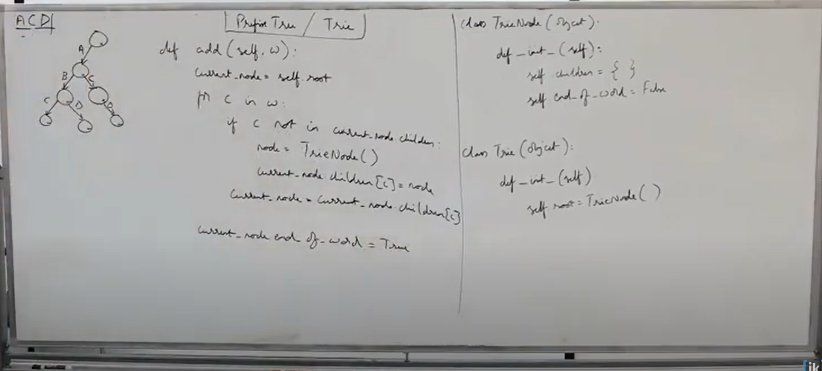 ACD
Prefix Tree / Trie
A
B C
C D D
def add (self, w):
current_node = self.root
for c in w:
if c not in current_node.children:
node = TrieNode ( )
current_node.children [c] = node
current_node = current_node.children [c]
current_node.end_of_word = True
class TrieNode (object):
def _init_ (self):
self.children = { }
self.end_of_word = False
class Trie (object):
def _init_ (self)
self.root = TrieNode ( )
ik